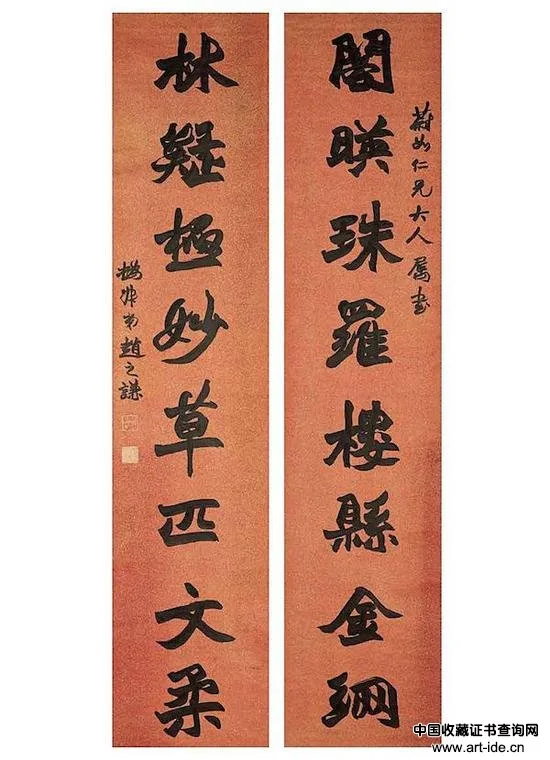 蔚如仁兄大人屬書
閣暎珠羅樓縣金網
林疑極妙草匹文柔
撝叔弟趙之謙
中国收藏证书查询网
www.art-ide.cn